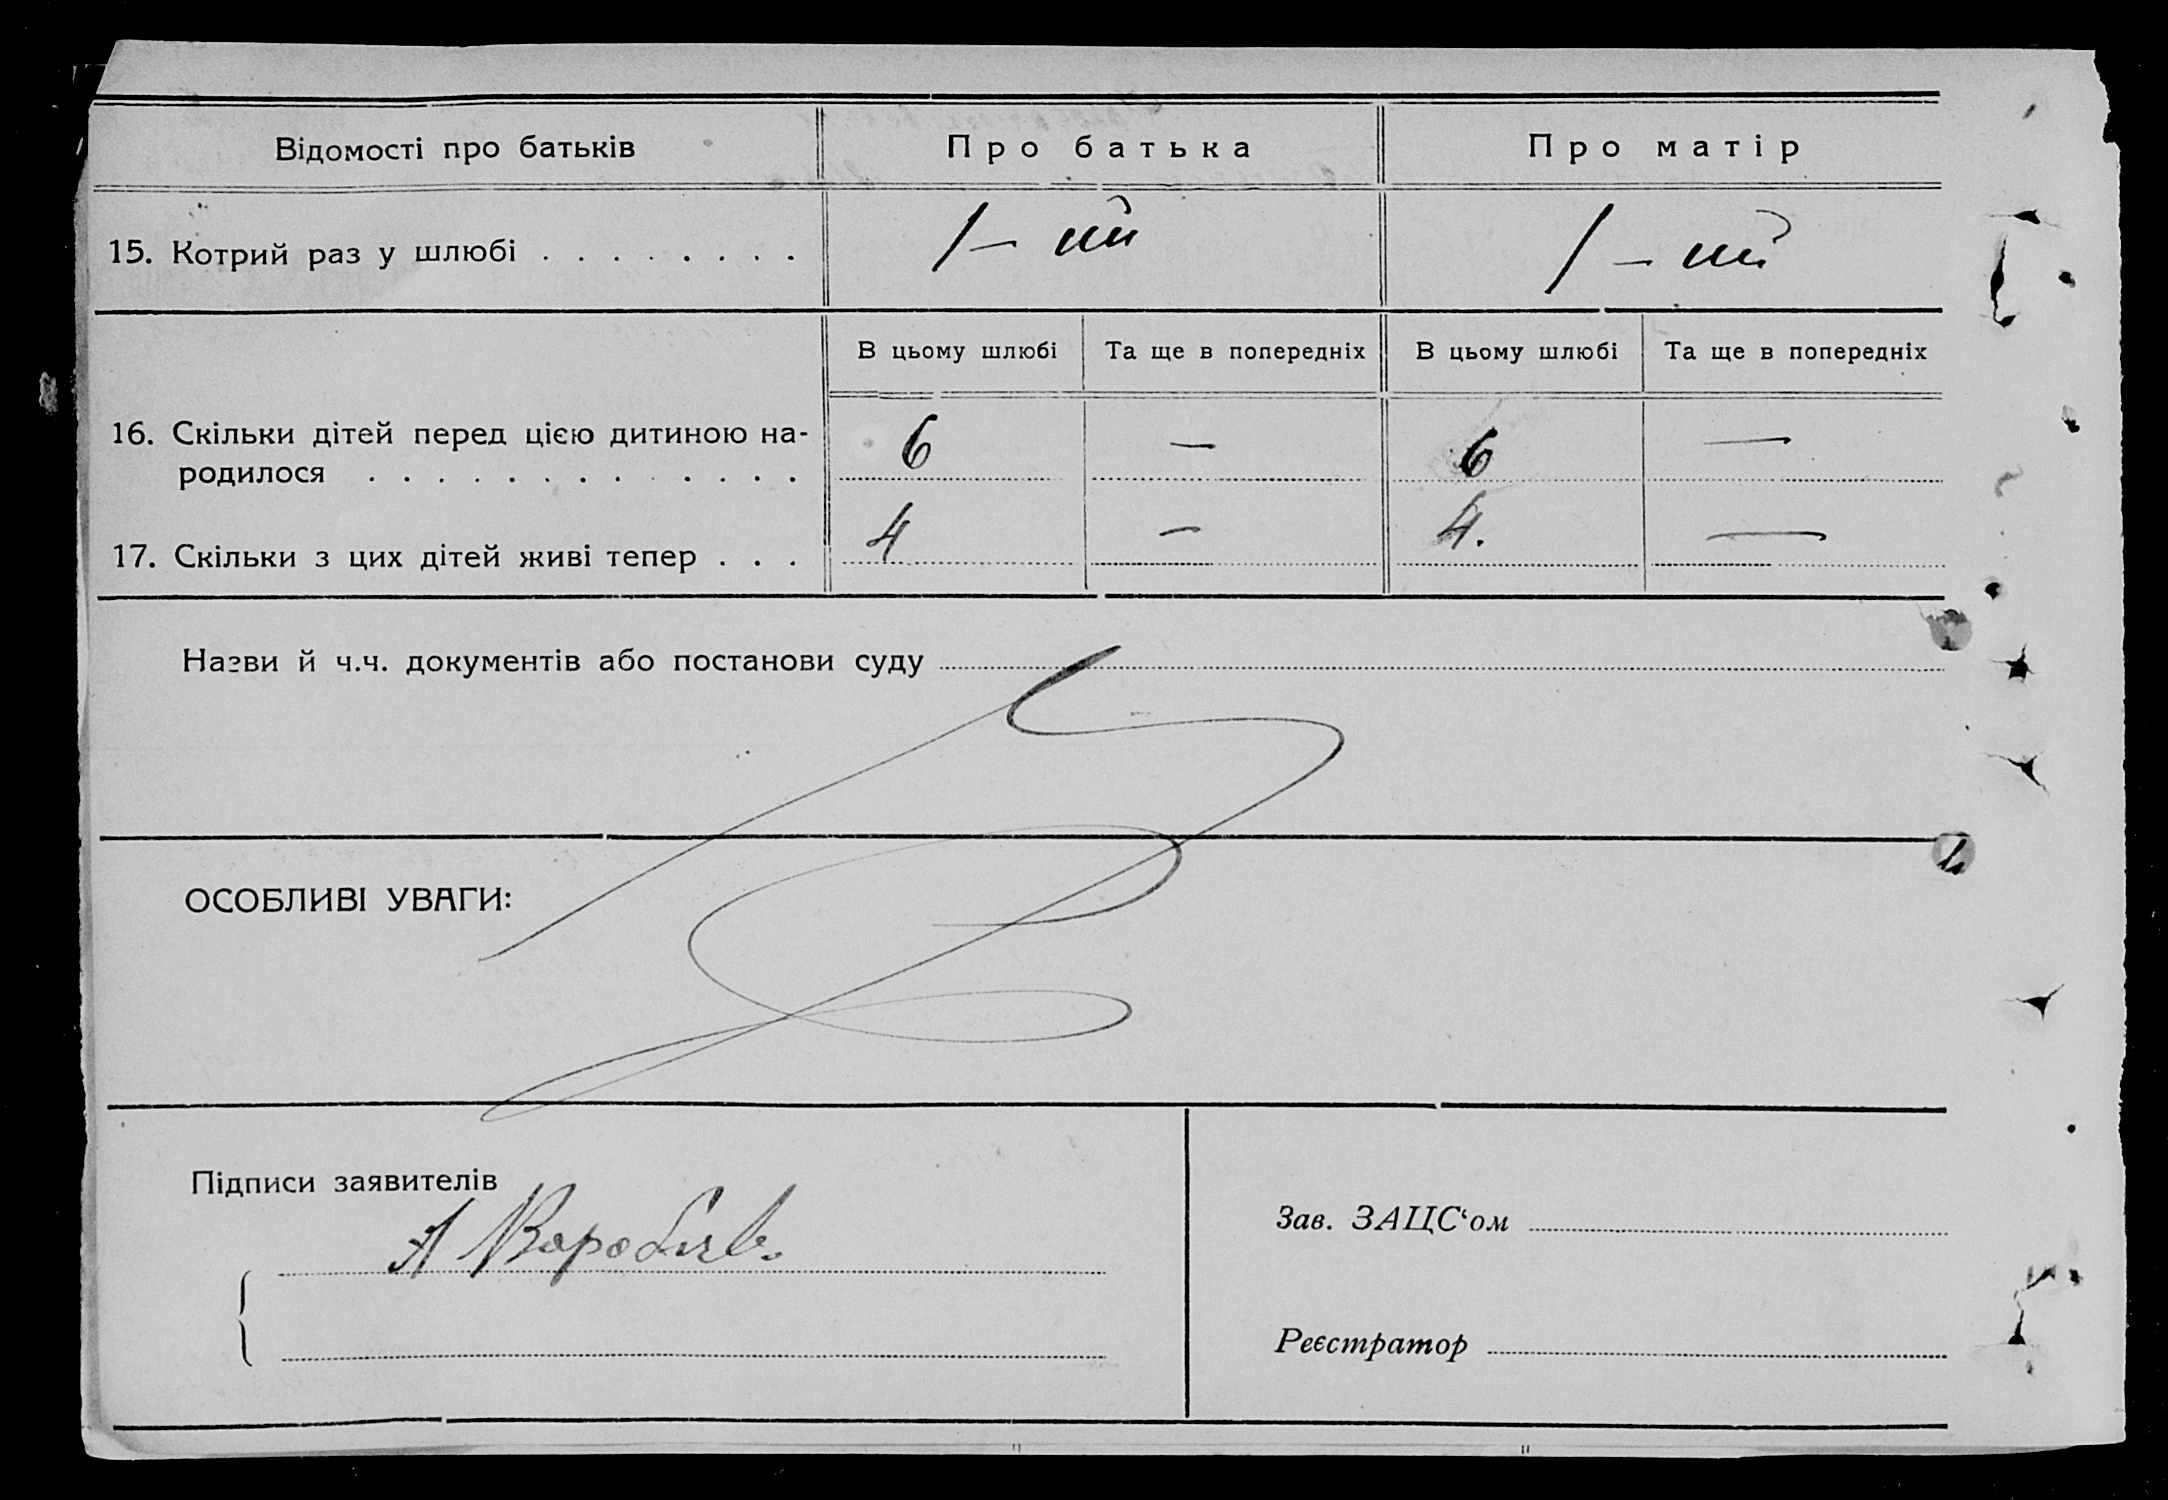 Відомості про батьків Про батька Про матір
15. Котрий раз у шлюбі . . . . . . . . 1 – ий 1 – ий
В цьому шлюбі Та ще в попередніх В цьому шлюбі Та ще в попередніх
16. Скільки дітей перед цією дитиною на-
родилося . . . . . . . . . . . . . 6 — 6 —
17. Скільки з цих дітей живі тепер . . . 4 — 4. —
Назви й ч.ч. документів або постанови суду
ОСОБЛИВІ УВАГИ:
Підписи заявителів
А Воробьяв
Зав. ЗАЦС‘ом
Реєстратор